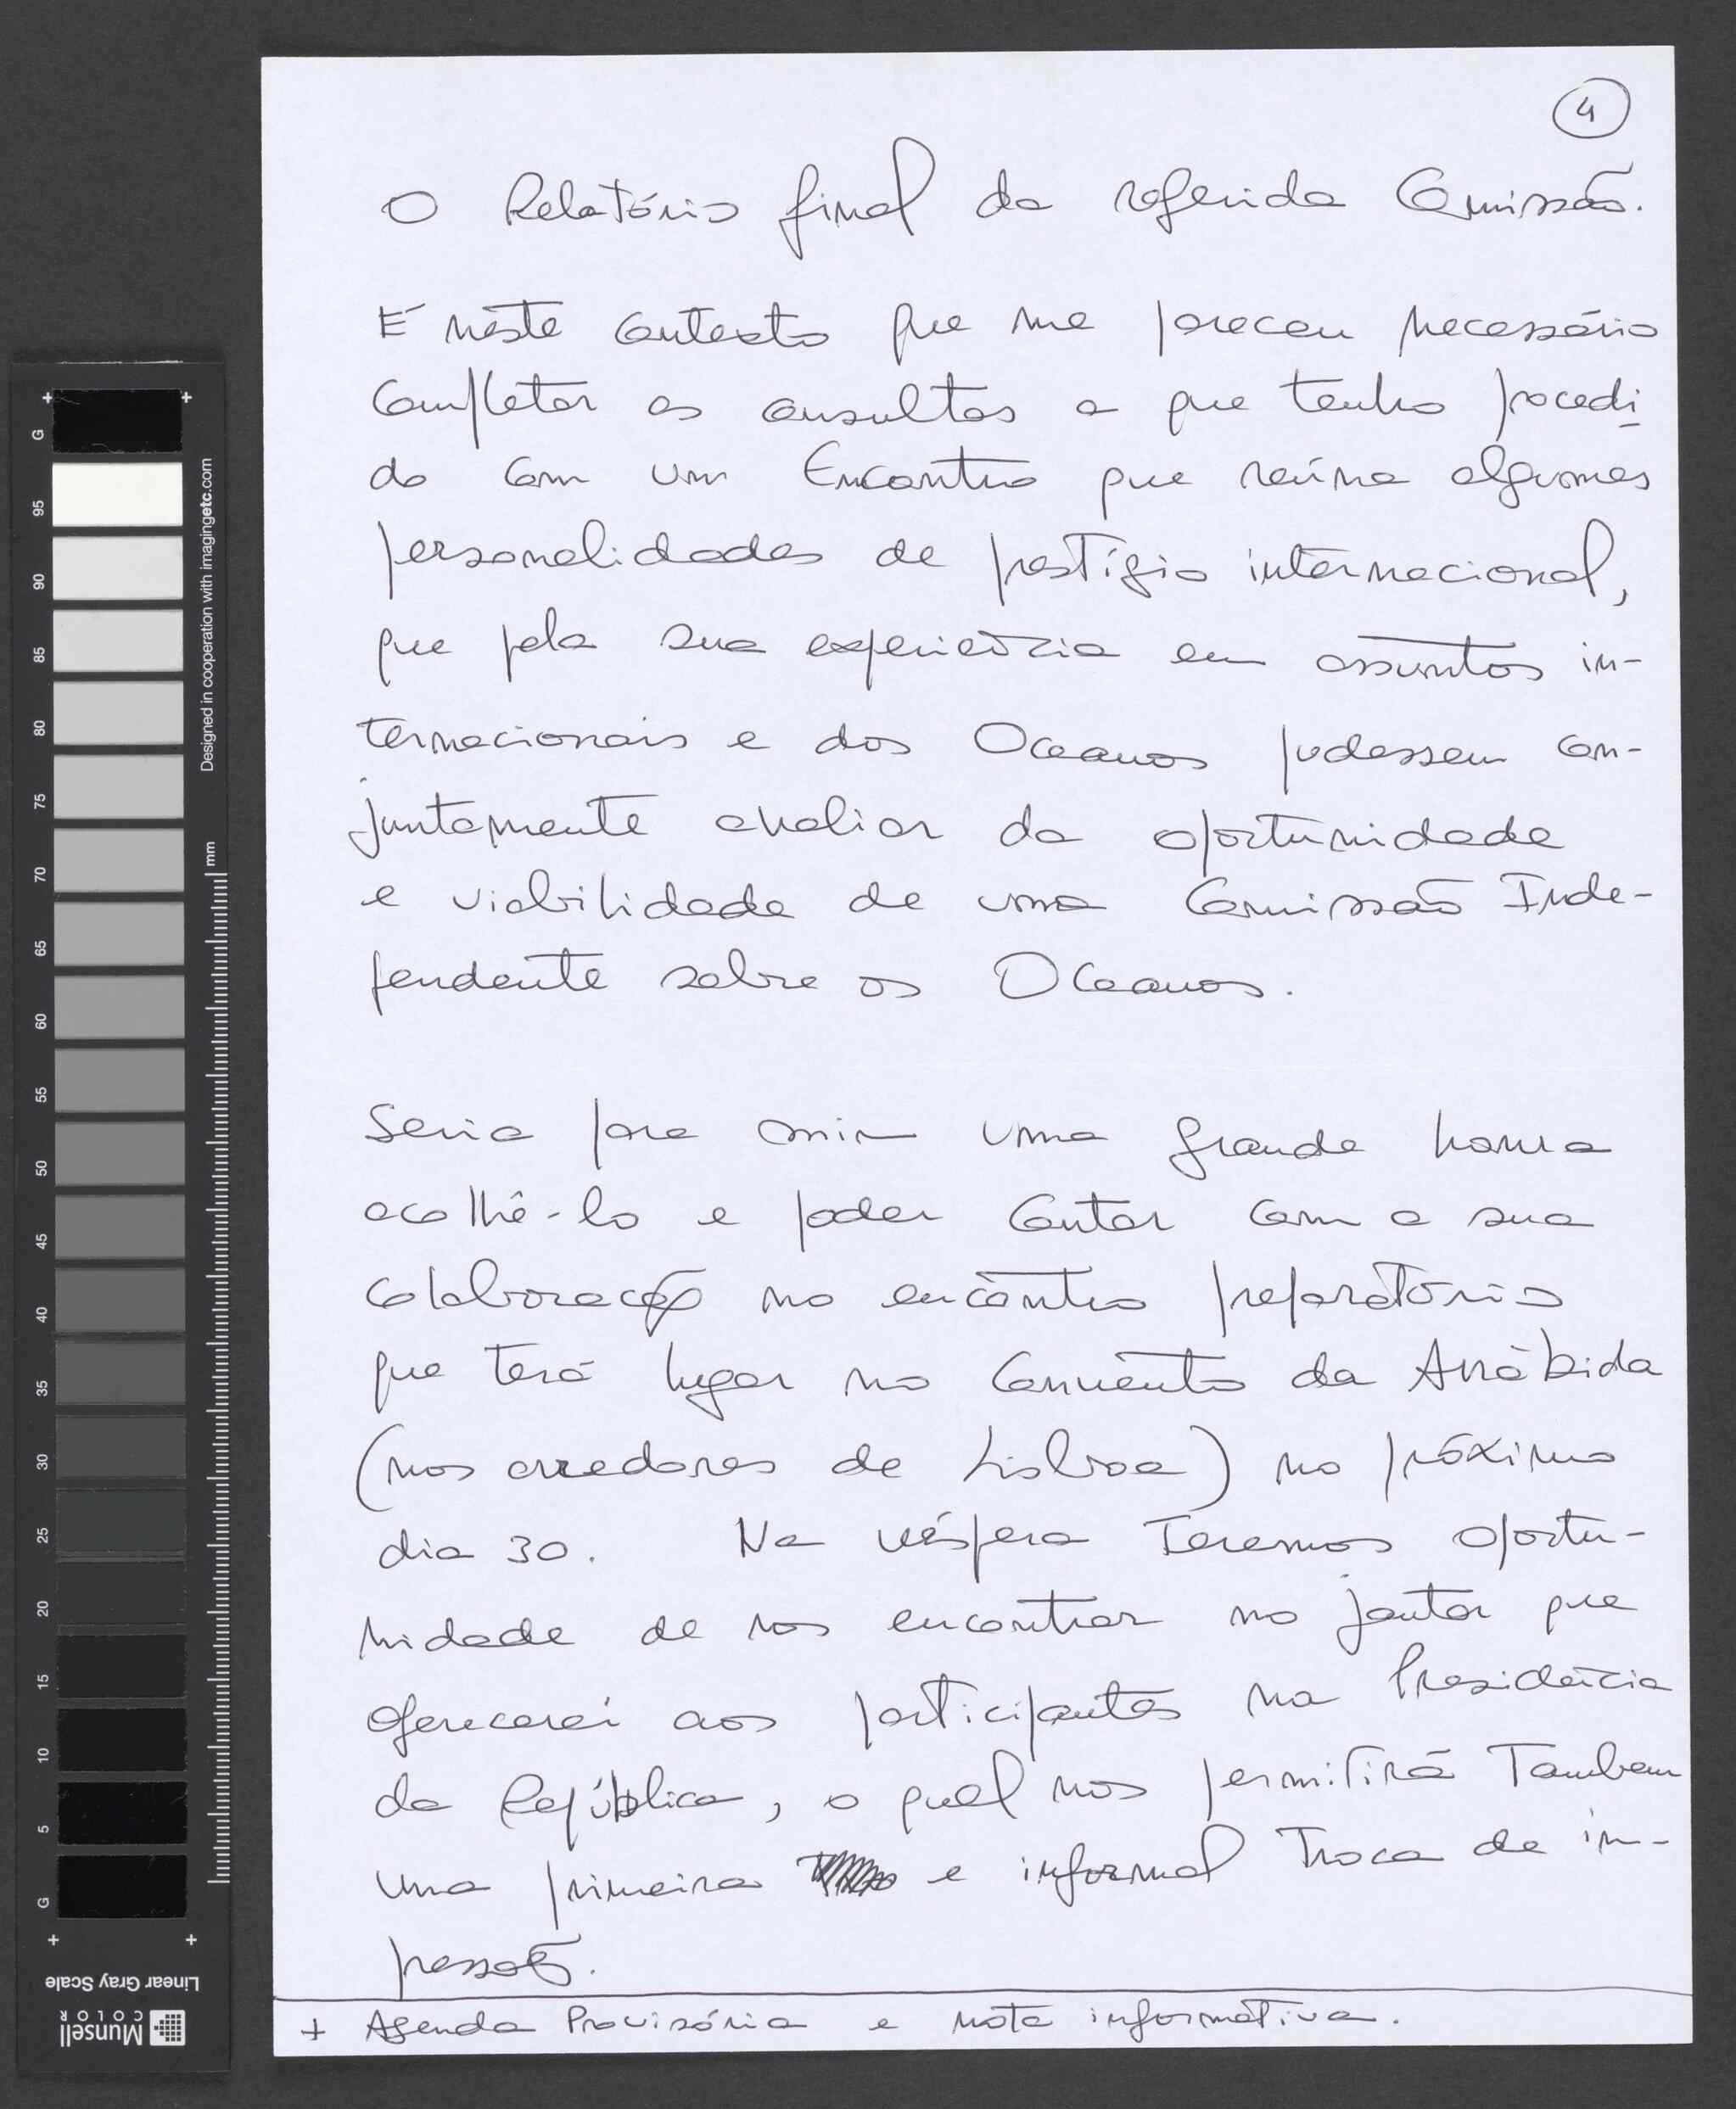 4
O Relatório final da referida Comissão.
É neste contexto que me pareceu necessário
completar as consultas a que tenho procedi
do com um Encontro que reúna algumas
personalidades de prestígio internacional,
que pela sua experiência em assuntos in-
ternacionais e dos Oceanos pudessem con-
juntamente avaliar da oportunidade
e viabilidade de uma Comissão Inde-
pendente sobre os Oceanos.
Seria para mim uma grande honra
acolhê-lo e poder contar com a sua
colaboração no encontro preparatório
que terá lugar no Convento da Arrábida
(nos arredores de Lisboa) no próximo
dia 30. Na véspera teremos oportu-
nidade de nos encontrar no jantar que
oferecerei aos participantes na Presidência
da República, o qual nos permitirá Tambem
uma primeira e informal Troca de im-
pressões.
+ Agenda Provisória e nota informativa.
G
95
90
85
80
75
70
65
60
55
50
45
40
35
30
25
20
15
10
5
G
Designed in cooperation with imagingetc.com
mm
Linear Gray Scale
Munsell
COLOR